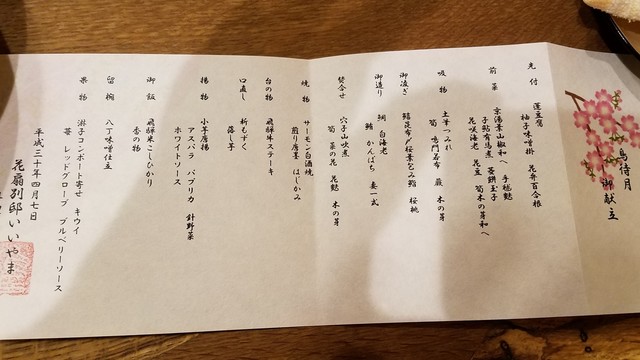 鳥待月
御献立
先付 蓬豆腐
柚子味噌掛 花弁百合根
前菜 京湯葉山椒和へ 手毬麩
子鮎有馬煮 菱餅玉子
花咲海老 花豆 筍木の芽和へ
吸物 土筆つみれ
筍 鳴門若布 蕨 木の芽
御凌ぎ 鯖昆布〆桜葉包み鮨 桜桃
御造り 鯛 白海老
鮪 かんぱち 妻一式
焚合せ 穴子山吹煮
筍 菜の花 花麩 木の芽
焼物 サーモン白酒焼
煎り唐墨 はじかみ
台の物 飛騨牛ステーキ
口直し 新もずく
落し芋
揚物 小芋唐揚
アスパラ パプリカ 針野菜
ホワイトソース
御飯 飛騨米こしひかり
香の物
留椀 八丁味噌仕立
果物 淋子コンポート寄せ キウイ
苺 レッドグローブ ブルベリーソース
平成三十年四月七日
花扇別邸いいやま